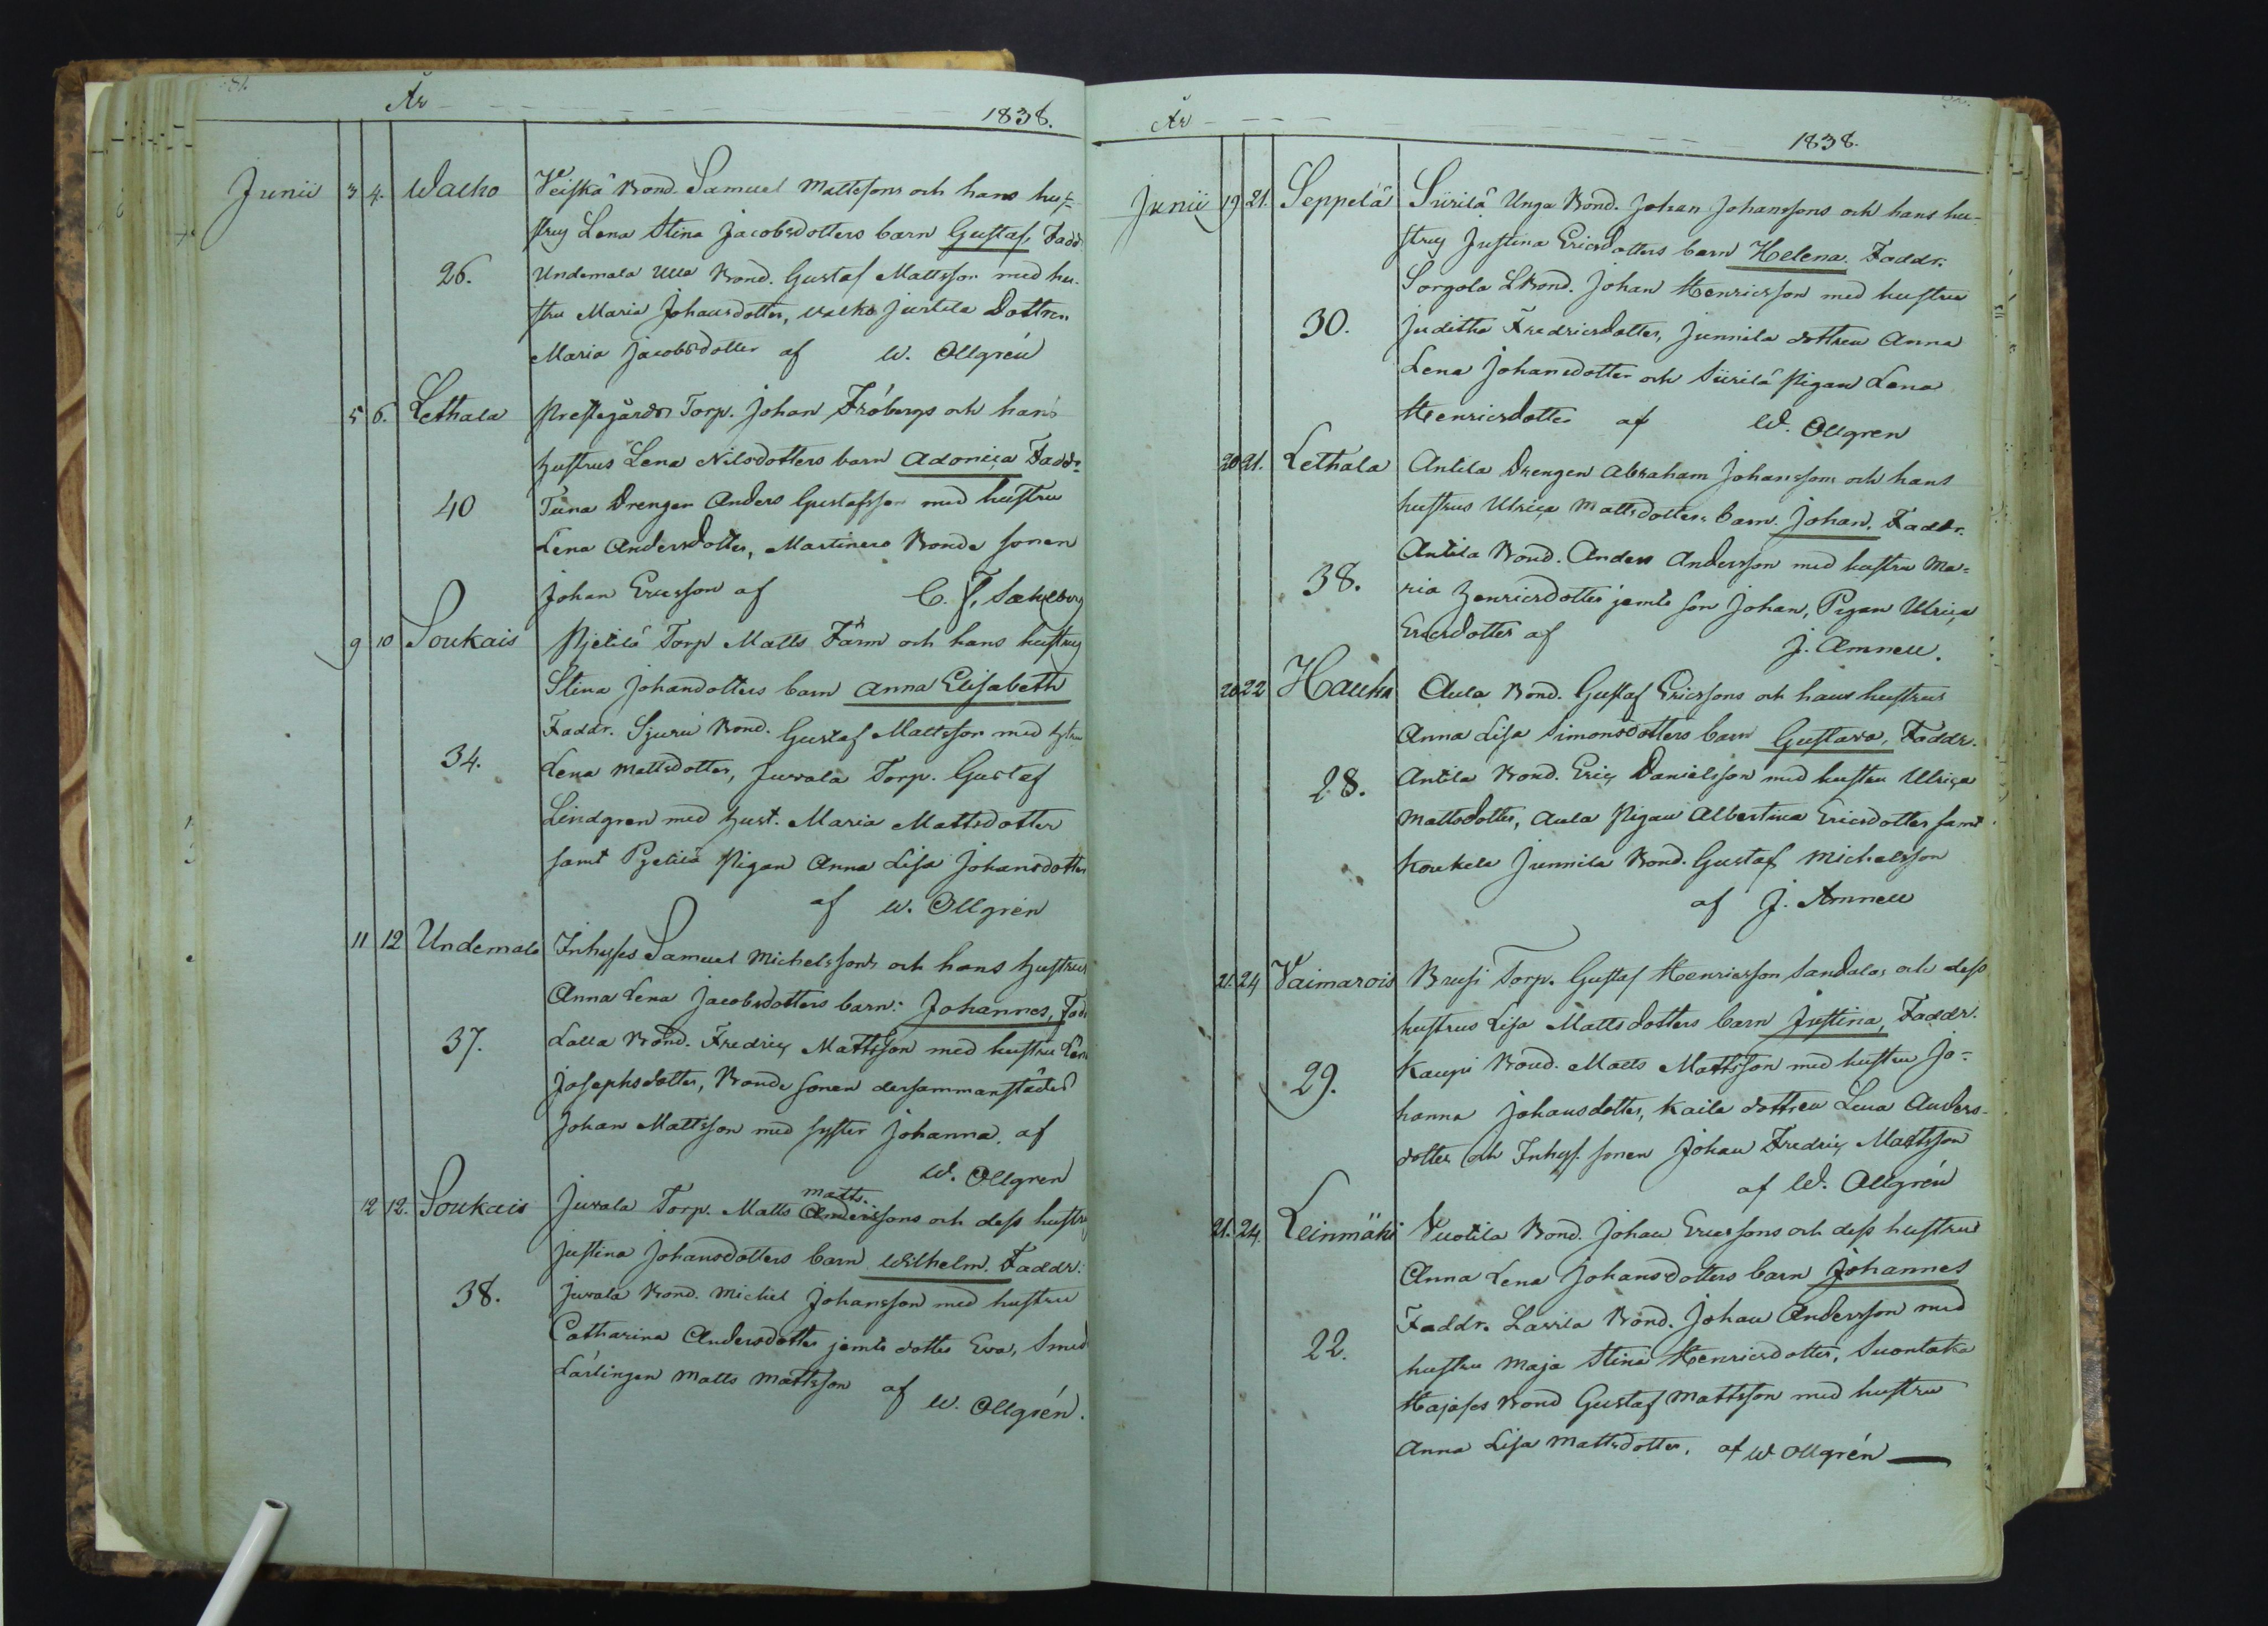 År 1838.
Junii 3 4. Walko Veiskä Bond. Samuel Mattssons och hans hus-
trus Lena Stina Jacobsdotters barn Gustaf, Fadd.
26. Undemala Ulla Bond. Gustaf Mattsson med hu-
stru Maria Johansdotter, Walko Juttila Dottren
Maria Jacobsdotter af W. Ollgrén
5 6. Lethala Prestegårds Torp. Johan Fröbergs och hans
hustrus Lena Nilsdotters barn Adonica Fadd.
40 Tuna Drengen Anders Gustafsson med hustru
Lena Andersdotter, Martinera Bonde sonen
Johan Ericsson af C. F. Sahlberg
9 10 Soukais Pjetilä Torp Matts Färm och hans hustrus
Stina Johansdotters barn Anna Elisabeth
Faddr. Sjuru Bond. Gustaf Mattsson med hstru
34. Lena Mattsdotter, Juvala Torp. Gustaf
Lindgren med hust. Maria Mattsdotter
samt Pjetilä Pigan Anna Lisa Johansdotter
af W. Ollgrén
11 12 Undemala Inhyses Samuel Michelssons och hans hustrus
Anna Lena Jacobsdotters barn: Johannes, Fadd
37. Lalla Bond. Fredric Mattsson med hustru Lena
Josephsdotter, Bonde sonen dersammanstädes
Johan Mattsson med syster Johanna, af
W. Ollgren
12 12. Soukais Juvala Torp. Matts Matts. Anderssons och dess hustrus
Justina Johansdotters barn Wilhelm. Faddr.
38. Juvala Bond. Michel Johansson med hustru
Catharina Andersdotter jemte dotter Eva, Smed
Lärlingen Matts Mattsson af W. Ollgrén.
År 1838.
Junii 19 21. Seppelä Siirilä Unga Bond. Johan Johanssons och hans hu-
strus Justina Ericsdotters barn Helena. Faddr.
Sorgola LBond. Johan Henricsson med hustru
30. Juditha Fredricsdotter, Junnila dottren Anna
Lena Johansdotter och Siirilä Pigan Lena
Henricsdotter af W. Ollgren
20 21. Lethala Antila Drengen Abraham Johanssons och hans
hustrus Ulrica Mattsdotters barn Johan. Faddr.
Antila Bond. Anders Andersson med hustru Ma-
38. ria Henricsdotter jemte son Johan, Pigan Ulrica
Ericsdotter af J. Amnell.
20 22 Hauka Aula Bond. Gustaf Ericssons och hans hustrus
Anna Lisa Simonsdotters barn Gustava, Faddr.
28. Antila Bond. Eric Danielsson med hustru Ulrica
Mattsdotter, Aula Pigan Albertina Ericsdotter samt
Koukela Junnila Bond. Gustaf Michelsson
af J. Amnell
21. 24 Vaimarois Brusi Torp. Gustaf Henricsson Sandalas och dess
hustrus Lisa Mattsdotters barn Justina, Faddr.
29. Kaupi Bond. Matts Mattsson med hustru Jo-
hanna Johansdotter, Kaila dottren Lena Anders-
dotter och Inhys. sonen Johan Fredric Mattsson
af W. Ollgrén
21. 24. Leinmäki Vuotila Bond. Johan Ericssons och dess hustrus
Anna Lena Johansdotters barn Johannes
Faddr. Lassila Bond. Johan Andersson med
22. hustru Maja Stina Henricsdotter, Suontaka
Hajases Bond Gustaf Mattsson med hustru
Anna Lisa Mattsdotter, af W Ollgrén